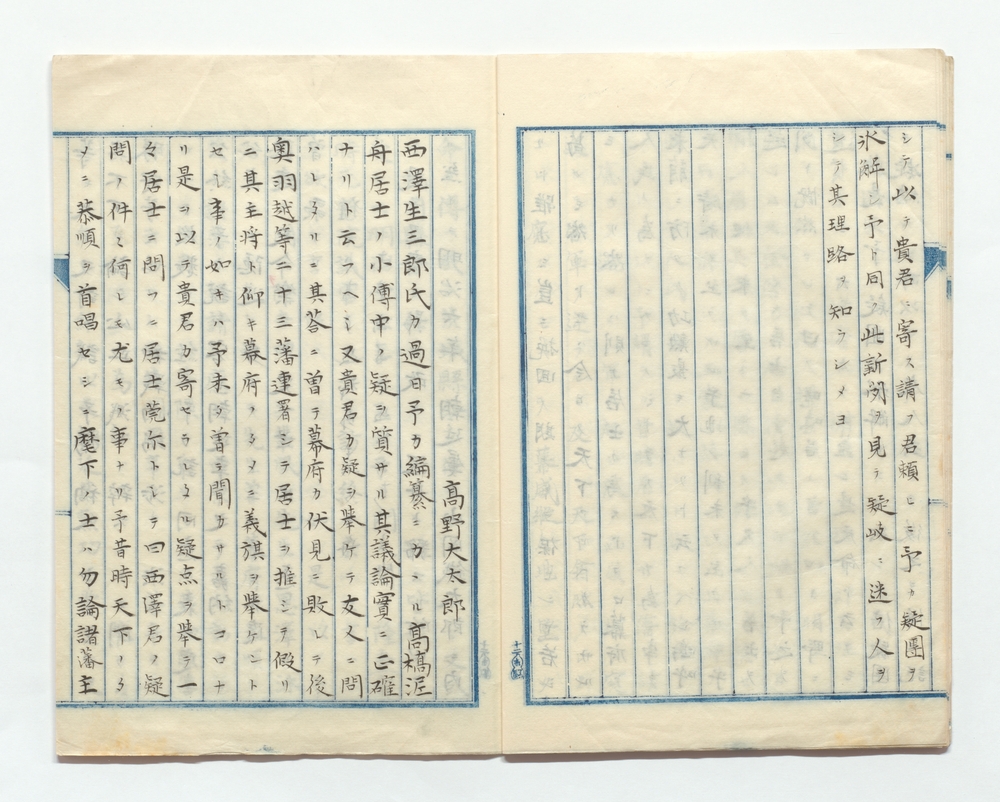 シテ以テ貴君ニ寄ス請フ君頼ヒニ予カ疑團ヲ
氷解シ予ト同ク此新聞ヲ見テ疑岐ニ迷フ人ヲ
シテ其理路ヲ知ラシメヨ
髙野大太郎
西澤生三郎氏カ過日予カ編纂ニカヽル髙橋泥
舟居士ノ小傳中ノ疑ヲ質サル其議論實ニ正確
ナリト云フヘシ又貴君カ疑ヲ舉ケテ友人ニ問
ハレタリニ其荅ニ曽テ幕府カ伏見ニ敗レテ後
奥羽越等二十三藩連署シテ居士ヲ推シテ假リ
ニ其主将ト仰キ幕府ノタメニ義旗ヲ舉ケント
セシ事ノ如キハ予未タ曽テ聞カサルトコロナ
リ是ヲ以テ貴君カ寄セラレタル疑点ヲ舉テ一
々居士ニ問フニ居士莞尓トシテ曰西澤君ノ疑
問ノ件々何レモ尤モノ事ナリ予昔時天下ノタ
メニ恭順ヲ首唱セシニ麾下ノ士ハ勿論諸藩主